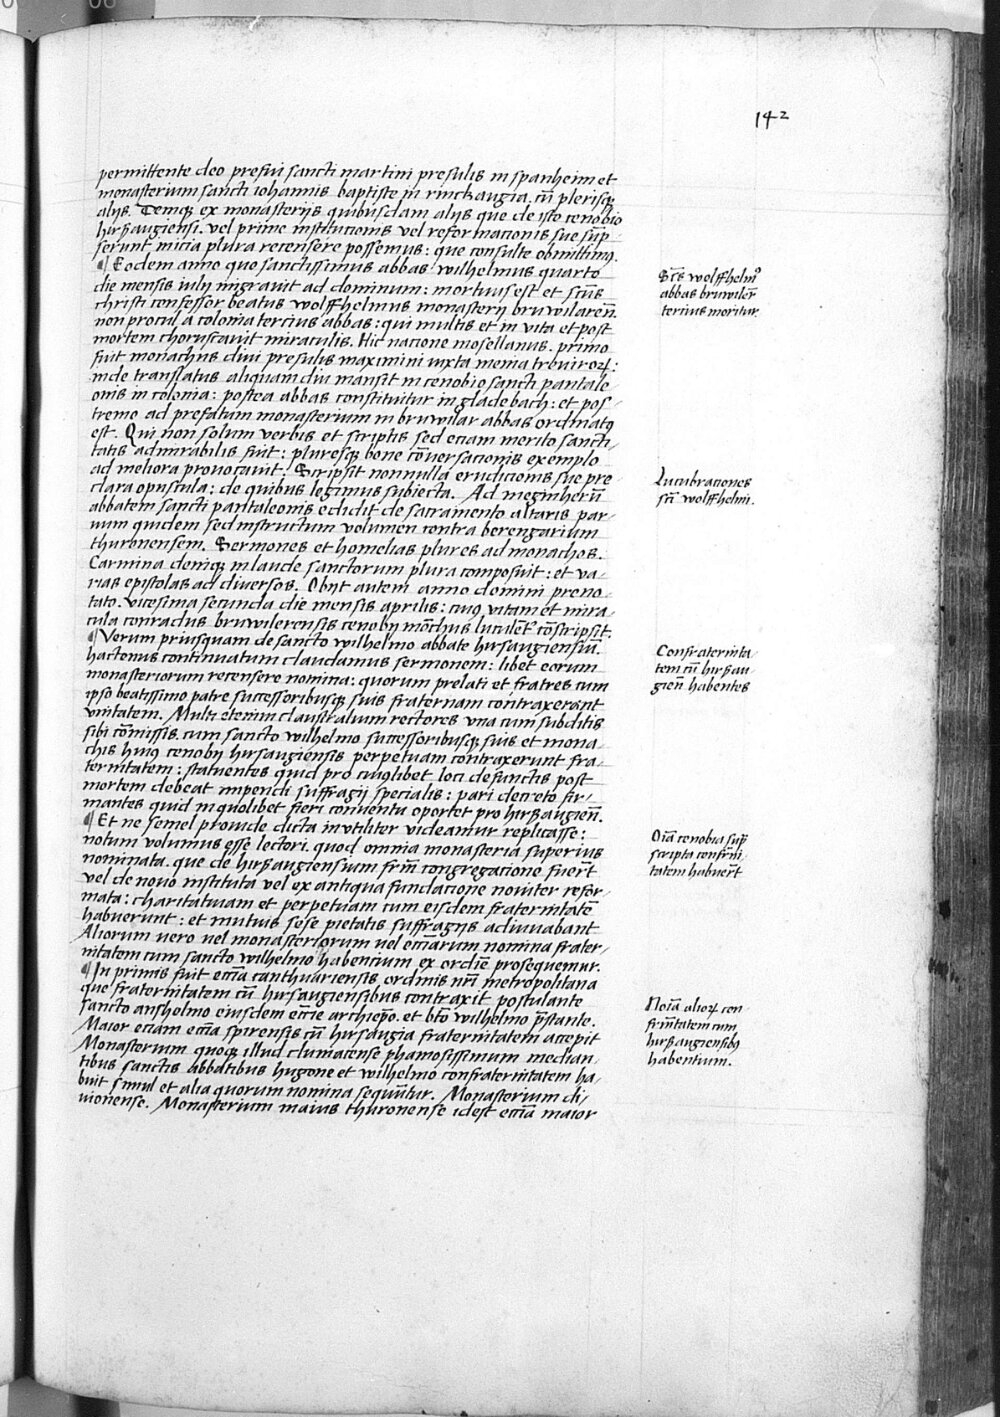 142
permittente deo prefui sancti martini presulis in spanheim et
monasterium sancti iohannis baptiste in rinckaugia. cū plerisqꝫ
alijs. Demqꝫ ex monasterijs quibusdam alijs que de isto cenobio
hirsaugiensi. vel prime institucionis vel reformacionis sue sūp
serunt inicia plura recensere possemus: que consulte obmittimꝰ.
¶ Eodem anno quo sanctissimus abbas wilhelmus quarto
die mensis iulij migravit ad dominum: mortuus est et sctūs
christi confessor beatus wolffhelmus monasterij bruwilareñ.
non procul a colonia tercius abbas: qui multis et in vita et post
mortem choruscavit miraculis. Hic nacione mosellanus. primo
fuit monachus divi presulis maximini iuxta menia treviroꝝ:
inde translatus aliquamdiu mansit in cenobio sancti pantale-
onis in colonia: postea abbas constituitur in gladebach: et pos-
tremo ad prefatum monasterium in bruwilar abbas ordinatꝰ
est. Qui non solum verbis et scriptis sed eciam merito sancti-
tatis admirabilis fuit: pluresqꝫ bone cōversacionis exemplo
ad meliora provocavit. Scripsit nonnulla erudicionis sue pre
clara opuscula: de quibus legimus subiecta. Ad meginherū
abbatem sancti pantaleonis edidit de sacramento altaris par-
vum quidem sed instructum volumen contra berengarium
thuronensem. Sermones et homelias plures ad monachos.
Carmina demqꝫ in laude sanctorum plura composuit: et va-
rias epistolas ad diversos. Obijt autem anno domini preno-
tato. vicesima secunda die mensis aprilis: cuiꝰ vitam et mira-
cula conradus bruwilerensis cenobij mōchus luculēt cōscripsit.
¶ Verum priusquam de sancto wilhelmo abbate hirsaugiensiū.
hactenus continuatum claudamus sermonem: libet eorum
monasteriorum recensere nomina: quorum prelati et fratres cum
ipso beatissimo patre successoribusqꝫ suis fraternam contraxerant
unitatem. Multi etenim claustralium rectores una cum subditis
sibi cōmissis. cum sancto wilhelmo successoribusqꝫ suis et mona-
chis huiꝰ cenobij hirsaugiensis perpetuam contraxerunt fra-
ternitatem: statuentes quid pro cuiuslibet loci defunctis post
mortem debeat impendi suffragij specialis: pari decreto fir-
mantes quid in quolibet fieri conventu oportet pro hirsaugieñ.
¶ Et ne semel provide dicta inutiliter videamur replicasse:
notum volumus esse lectori. quod omnia monasteria superius
nominata. que de hirsaugiensium frm̄ congregacione fuert̄
vel de novo instituta vel ex antiqua fundacione noviter refor-
mata: charitativam et perpetuam cum eisdem fraternitatē
habuerunt: et mutuis sese pietatis suffragijs adiuvabant
Aliorum vero vel monasteriorum vel eccīarum nomina frater-
nitatem cum sancto wilhelmo habencium ex ordiē prosequemur.
¶ In primis fuit eccīa canthuariensis ordinis nrī metropolitana
que fraternitatem cū hirsaugiensibus contraxit postulante
sancto anshelmo eiusdem eccīe archiepō. et btō wilhelmo prēstante.
Maior eciam eccīa spirensis cū hirsaugia fraternitatem accepit
Monasterium quoqꝫ illud cluniacense phamosissimum median-
tibus sanctis abbatibus hugone et wilhelmo confraternitatem ha-
buit simul et alia quorum nomina sequūtur. Monasterium di-
vionense. Monasterium maius thuronense idest eccīa maior
Sctūs wolffhelmꝰ
abbas bruwilēr
tercius moritur
Lucubraciones
sctī wolffhelmi.
Confraternita-
tem cū hirsau-
gieñ habentes
Oīa cenobia sūp
scripta confrni-
tatem habuert̄
Noīa alioꝝ con
frnitatem cum
hirsaugiensibꝰ
habentium.